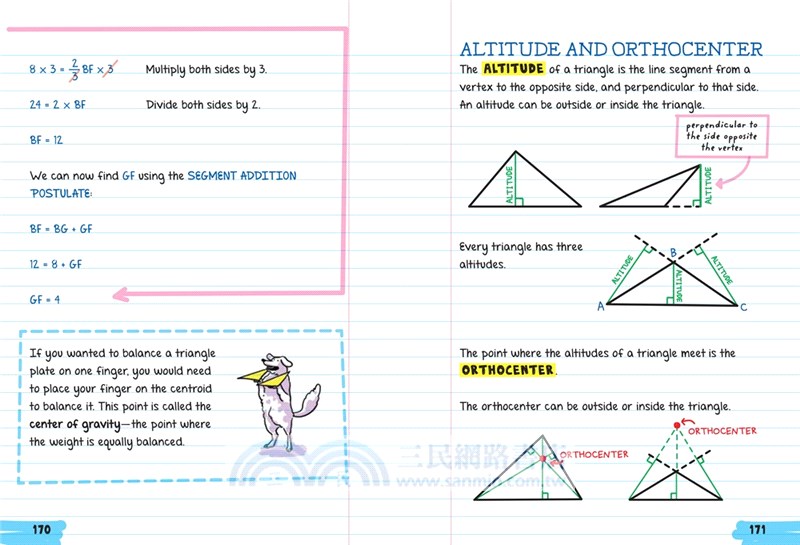 8 × 3 = 2/3 BF × 3 Multiply both sides by 3.
24 = 2 × BF Divide both sides by 2.
BF = 12
We can now find GF using the SEGMENT ADDITION
POSTULATE:
BF = BG + GF
12 = 8 + GF
GF = 4
If you wanted to balance a triangle
plate on one finger, you would need
to place your finger on the centroid
to balance it. This point is called the
center of gravity—the point where
the weight is equally balanced.
170
ALTITUDE AND ORTHOCENTER
The ALTITUDE of a triangle is the line segment from a
vertex to the opposite side, and perpendicular to that side.
An altitude can be outside or inside the triangle.
perpendicular to
the side opposite
the vertex
ALTITUDE
ALTITUDE
Every triangle has three
altitudes.
B
ALTITUDE
ALTITUDE
ALTITUDE
A
C
The point where the altitudes of a triangle meet is the
ORTHOCENTER.
The orthocenter can be outside or inside the triangle.
ORTHOCENTER
ORTHOCENTER
三民網路書店
www.sanmin.com.tw
171